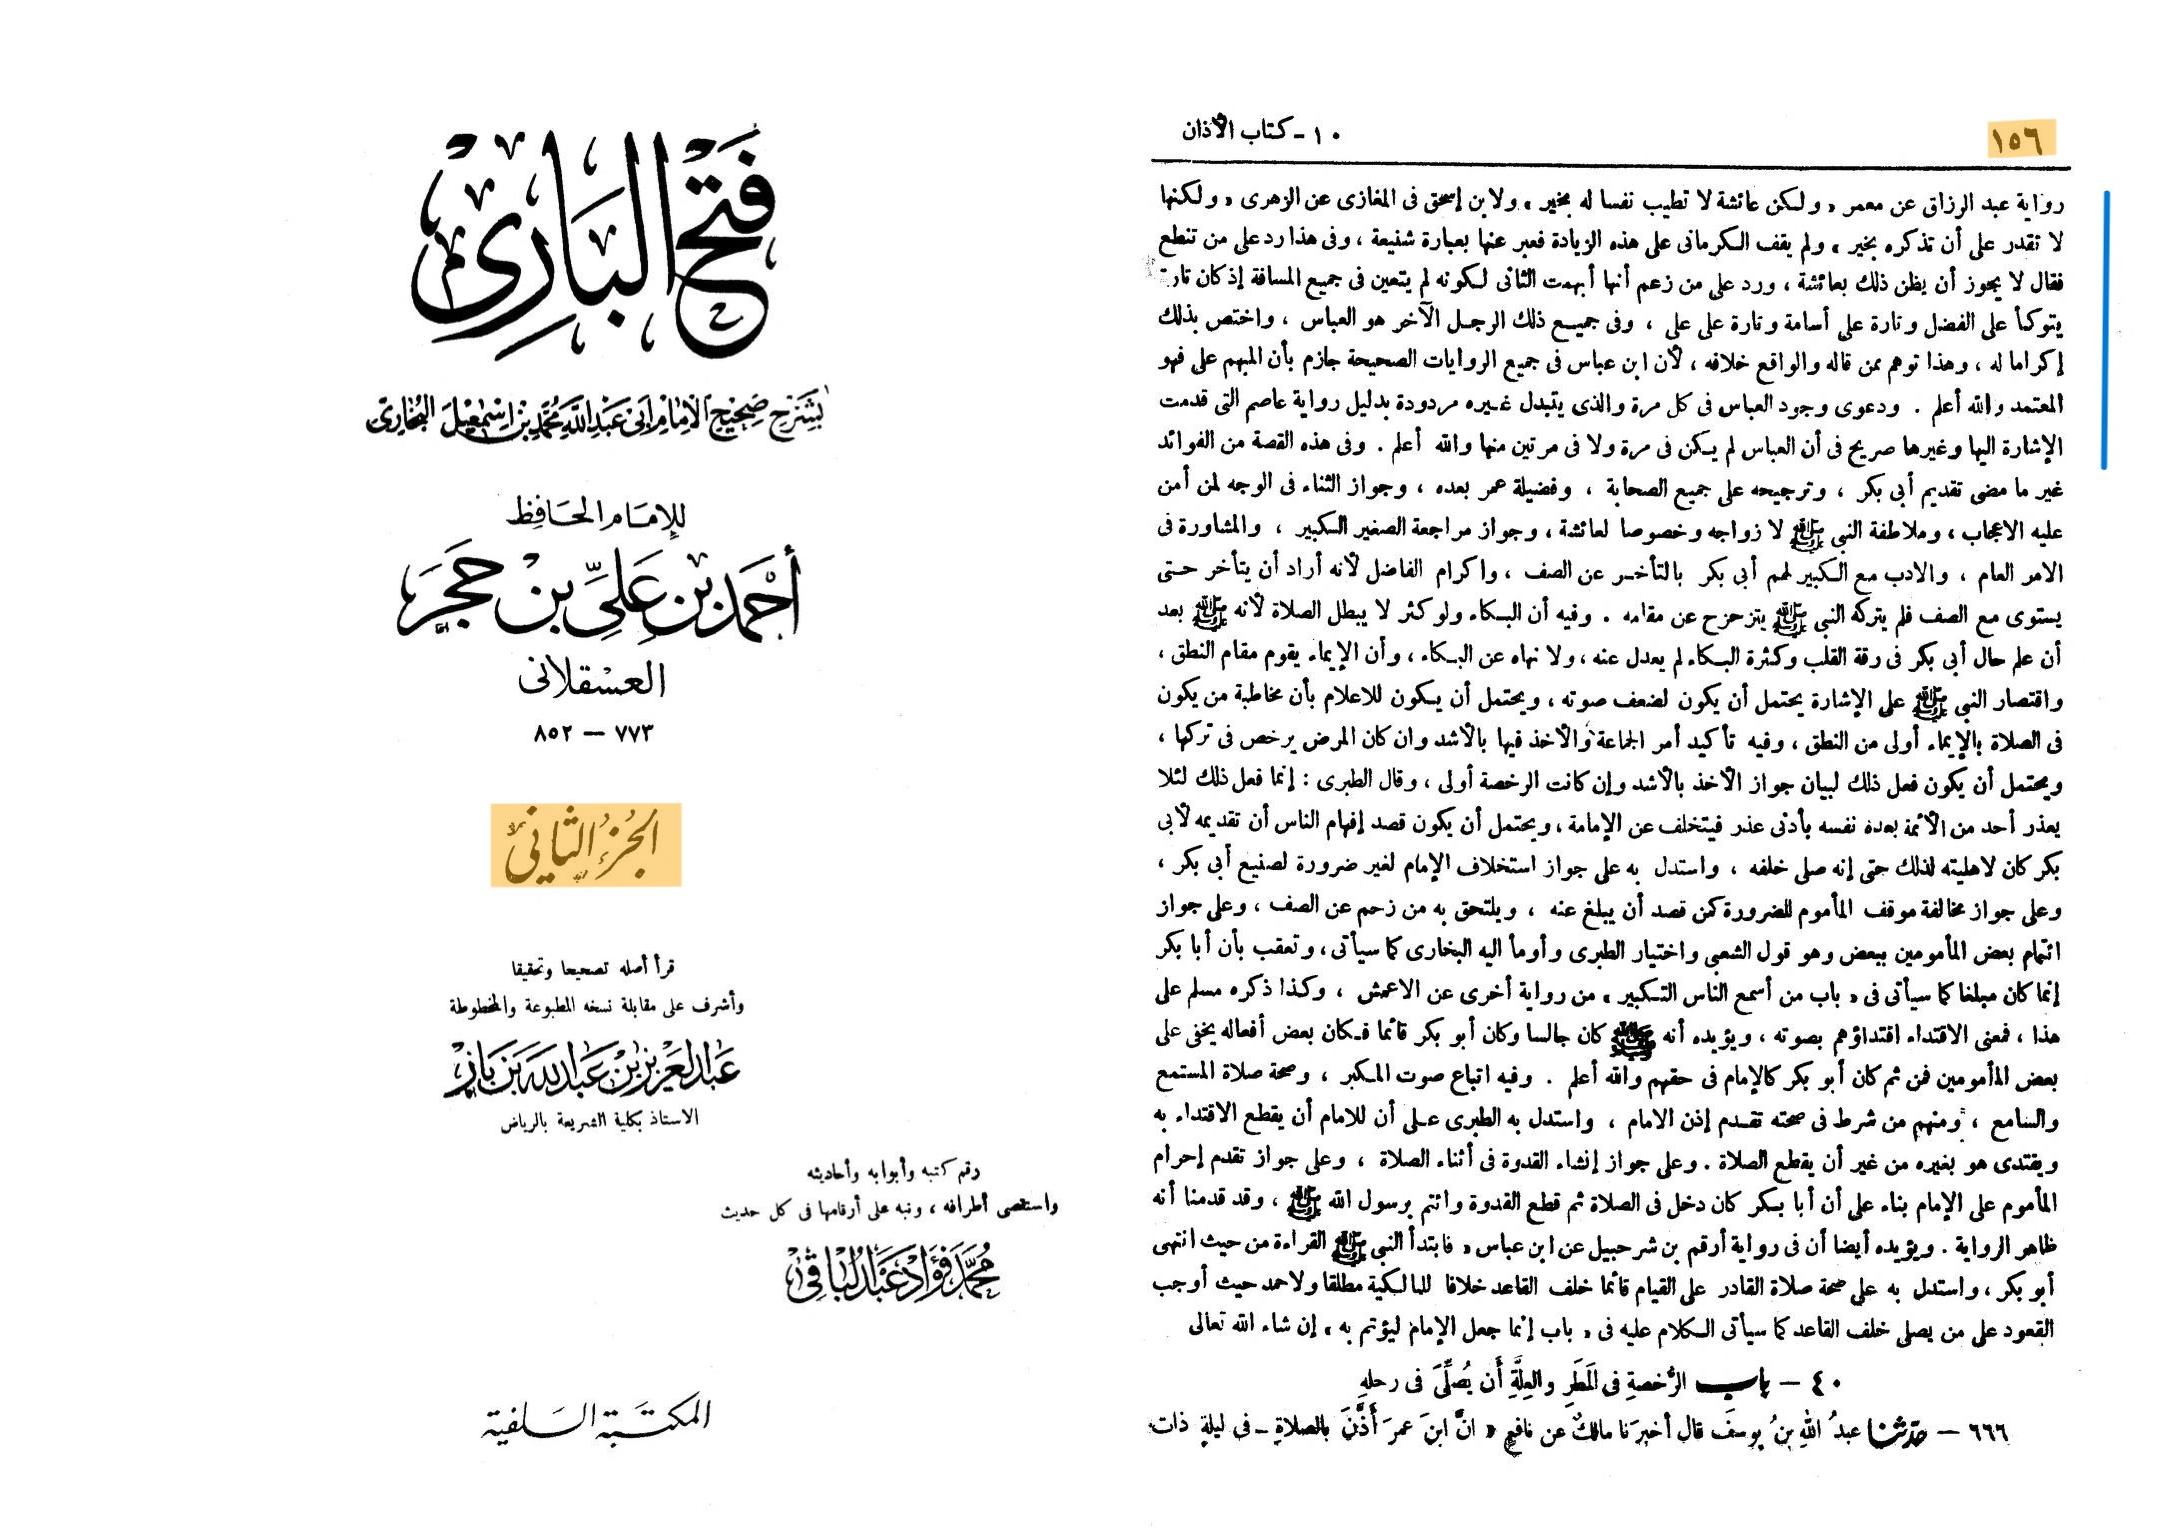 فتح البارى
بشرح صحيح الإمام أبى عبد الله محمد بن اسمعيل البخارى
للإمام الحافظ
أحمد بن على بن حجر
العسقلانى
٧٧٣ — ٨٥٢
الجزء الثانى
قرأ أصله تصحيحا وتحقيقا
وأشرف على مقابلة نسخه المطبوعة والمخطوطة
عبد العزيز بن عبد الله بن باز
الاستاذ بكلية الشريعة بالرياض
رقم كتبه وأبوابه وأحاديثه
واستقصى أطرافه ، ونبه على أرقامها فى كل حديث
محمد فؤاد عبد الباقى
المكتبة السلفية
١٥٦
١٠ - كتاب الأذان
رواية عبد الرزاق عن معمر « ولكن عائشة لا تطيب نفسا له بخير » ولابن إسحق فى المغازى عن الزهرى « ولكنها
لا تقدر على أن تذكره بخير » ولم يقف الكرمانى على هذه الزيادة فعبر عنها بعبارة شنيعة ، وفى هذا رد على من تنطع
فقال لا يجوز أن يظن ذلك بعائشة ، ورد على من زعم أنها أبهمت الثانى لكونه لم يتعين فى جميع المسافة إذ كان تارة
يتوكأ على الفضل وتارة على أسامة وتارة على على ، وفى جميع ذلك الرجل الآخر هو العباس ، واختص بذلك
إكراما له ، وهذا توهم ممن قاله والواقع خلافه ، لأن ابن عباس فى جميع الروايات الصحيحة جازم بأن المبهم على فهو
المعتمد والله أعلم . ودعوى وجود العباس فى كل مرة والذى يتبدل غيره مردودة بدليل رواية عاصم التى قدمت
الإشارة اليها وغيرها صريح فى أن العباس لم يكن فى مرة ولا فى مرتين منها والله أعلم . وفى هذه القصة من الفوائد
غير ما مضى تقديم أبى بكر ، وترجيحه على جميع الصحابة ، وفضيلة عمر بعده ، وجواز الثناء فى الوجه لمن أمن
عليه الاعجاب ، وملاطفة النبى ﷺ لازواجه وخصوصا لعائشة ، وجواز مراجعة الصغير الكبير ، والمشاورة فى
الامر العام ، والادب مع الكبير لهم أبى بكر بالتأخر عن الصف ، واكرام الفاضل لأنه أراد أن يتأخر حتى
يستوى مع الصف فلم يتركه النبى ﷺ يتزحزح عن مقامه . وفيه أن البكاء ولو كثر لا يبطل الصلاة لأنه ﷺ بعد
أن علم حال أبى بكر فى رقة القلب وكثرة البكاء لم يعدل عنه ، ولا نهاه عن البكاء ، وأن الإيماء يقوم مقام النطق ،
واقتصار النبى ﷺ على الإشارة يحتمل أن يكون لضعف صوته ، ويحتمل أن يكون للاعلام بأن مخاطبة من يكون
فى الصلاة بالإيماء أولى من النطق ، وفيه تأكيد أمر الجماعة والأخذ فيها بالأشد وان كان المرض يرخص فى تركها ،
ويحتمل أن يكون فعل ذلك لبيان جواز الأخذ بالأشد وإن كانت الرخصة أولى ، وقال الطبرى : إنما فعل ذلك لئلا
يعذر أحد من الأئمة بعده نفسه بأدنى عذر فيتخلف عن الإمامة ، ويحتمل أن يكون قصد إفهام الناس أن تقديمه لأبى
بكر كان لاهليته لذلك حتى إنه صلى خلفه ، واستدل به على جواز استخلاف الإمام لغير ضرورة لصنيع أبى بكر ،
وعلى جواز مخالفة موقف المأموم للضرورة كمن قصد أن يبلغ عنه ، ويلتحق به من زحم عن الصف ، وعلى جواز
ائتمام بعض المأمومين ببعض وهو قول الشعبى واختيار الطبرى وأومأ اليه البخارى كما سيأتى ، وتعقب بأن أبا بكر
إنما كان مبلغا كما سيأتى فى « باب من أسمع الناس التكبير » من رواية أخرى عن الاعمش ، وكذا ذكره مسلم على
هذا ، فمعنى الاقتداء اقتداؤهم بصوته ، ويؤيده أنه ﷺ كان جالسا وكان أبو بكر قائما فكان بعض أفعاله يخفى على
بعض المأمومين فمن ثم كان أبو بكر كالإمام فى حقهم والله أعلم . وفيه اتباع صوت المكبر ، وصحة صلاة المستمع
والسامع ، ومنهم من شرط فى صحته تقدم إذن الامام ، واستدل به الطبرى على أن للامام أن يقطع الاقتداء به
ويقتدى هو بغيره من غير أن يقطع الصلاة . وعلى جواز إنشاء القدوة فى أثناء الصلاة ، وعلى جواز تقدم إحرام
المأموم على الإمام بناء على أن أبا بكر كان دخل فى الصلاة ثم قطع القدوة وائتم برسول الله ﷺ ، وقد قدمنا أنه
ظاهر الرواية . ويؤيده أيضا أن فى رواية أرقم بن شرحبيل عن ابن عباس « فابتدأ النبى ﷺ القراءة من حيث انتهى
أبو بكر ، واستدل به على صحة صلاة القادر على القيام قائما خلف القاعد خلافا للمالكية مطلقا ولاحمد حيث أوجب
القعود على من يصلى خلف القاعد كما سيأتى الكلام عليه فى « باب إنما جعل الإمام ليؤتم به » إن شاء الله تعالى
٤٠ — باب الرُّخصةِ فى المَطَرِ والعِلَّةِ أَن يُصلِّىَ فى رحلهِ
٦٦٦ — حدّثنا عبدُ اللهِ بنُ يوسفَ قال أخبرَنا مالكٌ عن نافعٍ « انَّ ابنَ عمرَ أَذَّنَ بالصلاةِ - فى ليلةٍ ذات